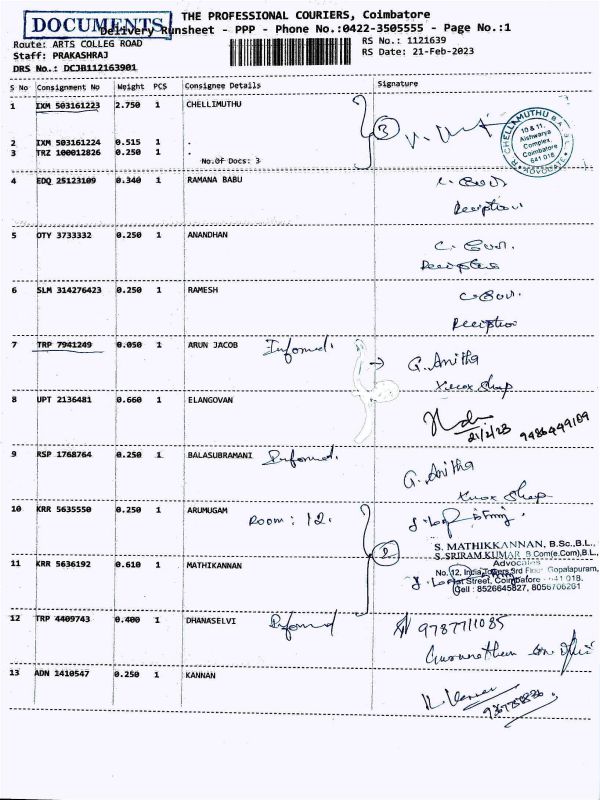 DOCUMENTS THE PROFESSIONAL COURIERS, Coimbatore
Delivery Runsheet - PPP - Phone No.:0422-3505555 - Page No.:1
Route: ARTS COLLEG ROAD RS No.: 1121639
Staff: PRAKASHRAJ RS Date: 21-Feb-2023
DRS No.: DCJB112163901
S No Consignment No Weight PCS Consignee Details Signature
1 IXM 503161223 2.750 1 CHELLIMUTHU
3
R. CHELLAMUTHU B.A., B.L.,
10 & 11,
Aishwarya
Complex,
Coimbatore
641 018
ADVOCATE
2 IXM 503161224 0.515 1 .
3 TRZ 100012826 0.250 1 .
No.Of Docs: 3
4 EDQ 25123109 0.340 1 RAMANA BABU
Reception
5 OTY 3733332 0.250 1 ANANDHAN
Reception
6 SLM 314276423 0.250 1 RAMESH
Reception
7 TRP 7941249 0.050 1 ARUN JACOB Informed. → G. Anitha
Xerox Shop
8 UPT 2136481 0.660 1 ELANGOVAN
21/2/23 9486499109
9 RSP 1768764 0.250 1 BALASUBRAMANI Informed. G. Anitha
Xerox Shop
10 KRR 5635550 0.250 1 ARUMUGAM
Room: 12.
2
S. MATHIKKANNAN, B.Sc.,B.L.,
S. SRIRAM KUMAR, B.Com(e.Com),B.L.,
Advocates
No. 12, India Towers 3rd Floor Gopalapuram,
Street, Coimbatore - 641 018.
Cell : 8526645827, 8056706261
11 KRR 5636192 0.610 1 MATHIKANNAN
12 TRP 4409743 0.400 1 DHANASELVI Informed 9787711085
13 ADN 1410547 0.250 1 KANNAN